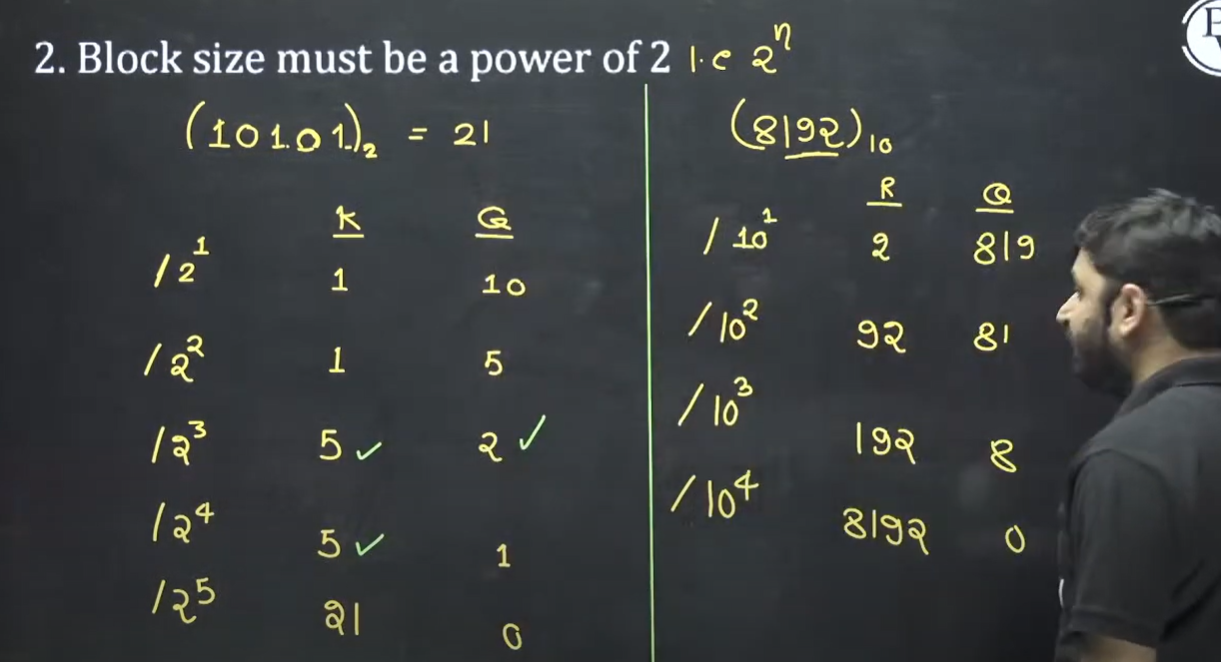 2. Block size must be a power of 2 i.e 2ⁿ
(10101)₂ = 21
R Q
/2¹ 1 10
/2² 1 5
/2³ 5 ✓ 2 ✓
/2⁴ 5 ✓ 1
/2⁵ 21 0
(8192)₁₀
R Q
/10¹ 2 819
/10² 92 81
/10³ 192 8
/10⁴ 8192 0